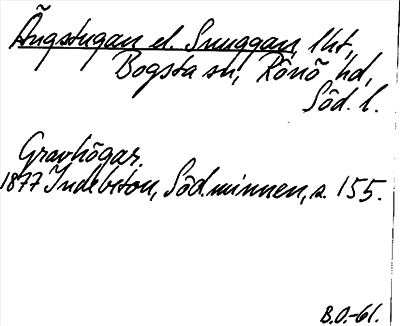 Ängstugan el. Snuggan, lht,
Bogsta sn, Rönö hd,
Söd. l.
Gravhögar.
1877 Indebetou, Söd.minnen, s. 155.
B.O.-61.